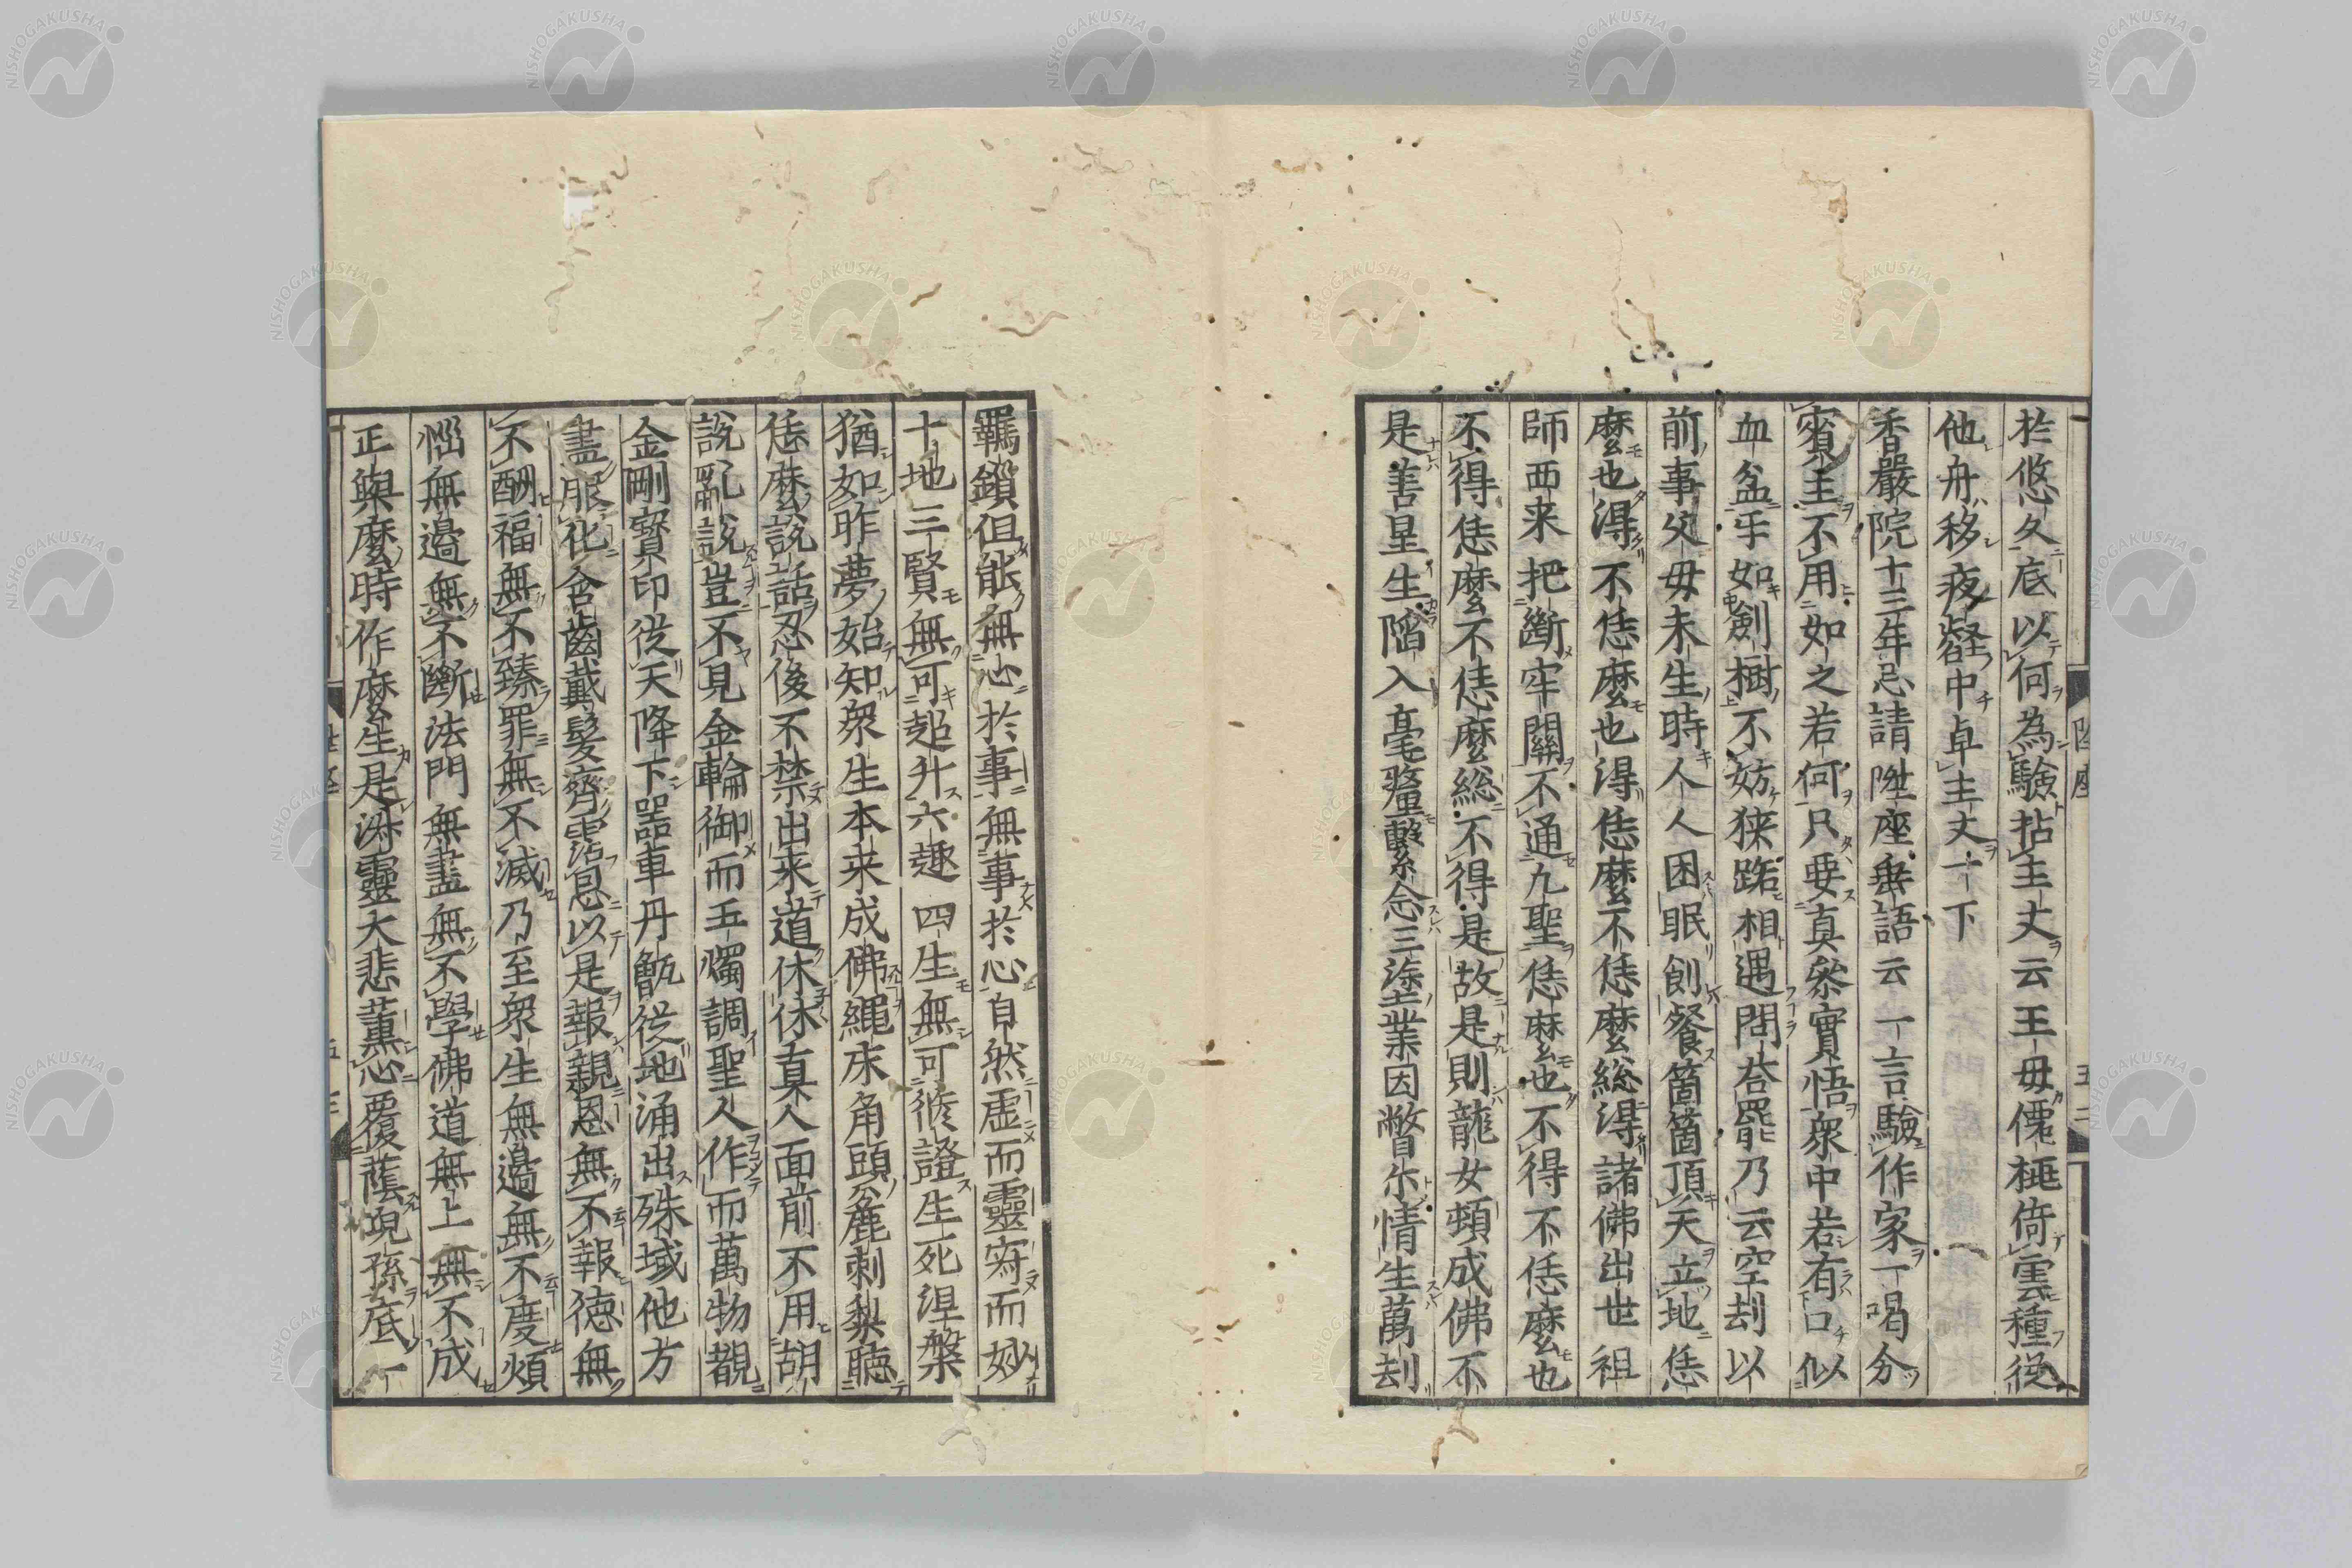 於悠久底以何為驗拈主丈云王母僊桃倚雲種從
他舟移夜壑中卓主丈一下
香嚴院十三年忌請陞座垂語云一言驗作家一喝分
賓主不用如之若何只要真參實悟衆中若有口似
血盆牙如劍樹不妨狹路相遇問荅罷乃云空刧以
前事父母未生時人人困眠飢餐箇箇頂天立地恁
麼也得不恁麼也得恁麼不恁麼総得諸佛出世祖
師西来把斷牢關不通九聖恁麼也不得不恁麼也
不得恁麼不恁麼総不得是故是則龍女頓成佛不
是善星生陷入毫釐繫念三塗業因瞥尓情生萬刧
羈鎖但能無心於事無事於心自然虛而靈寂而妙
十地三賢無可超升六趣四生無可修證生死涅槃
猶如昨夢始知衆生本来成佛繩床角頭麁刺梨聴
恁麼說話忍後不禁出来道休休真人面前不用胡
說亂說豈不見金輪御而玉燭調聖人作而萬物覩
金剛寳印從天降下噐車丹甑從地涌出殊域他方
盡服化含齒戴髮齊霑恩以是報親恩無不報徳無
不酬福無不臻罪無不滅乃至衆生無邊無不度煩
惱無邊無不斷法門無盡無不學佛道無上無不成
正與麼時作麼生是浄靈大悲薰心覆蔭兒孫底一
陞座
五二